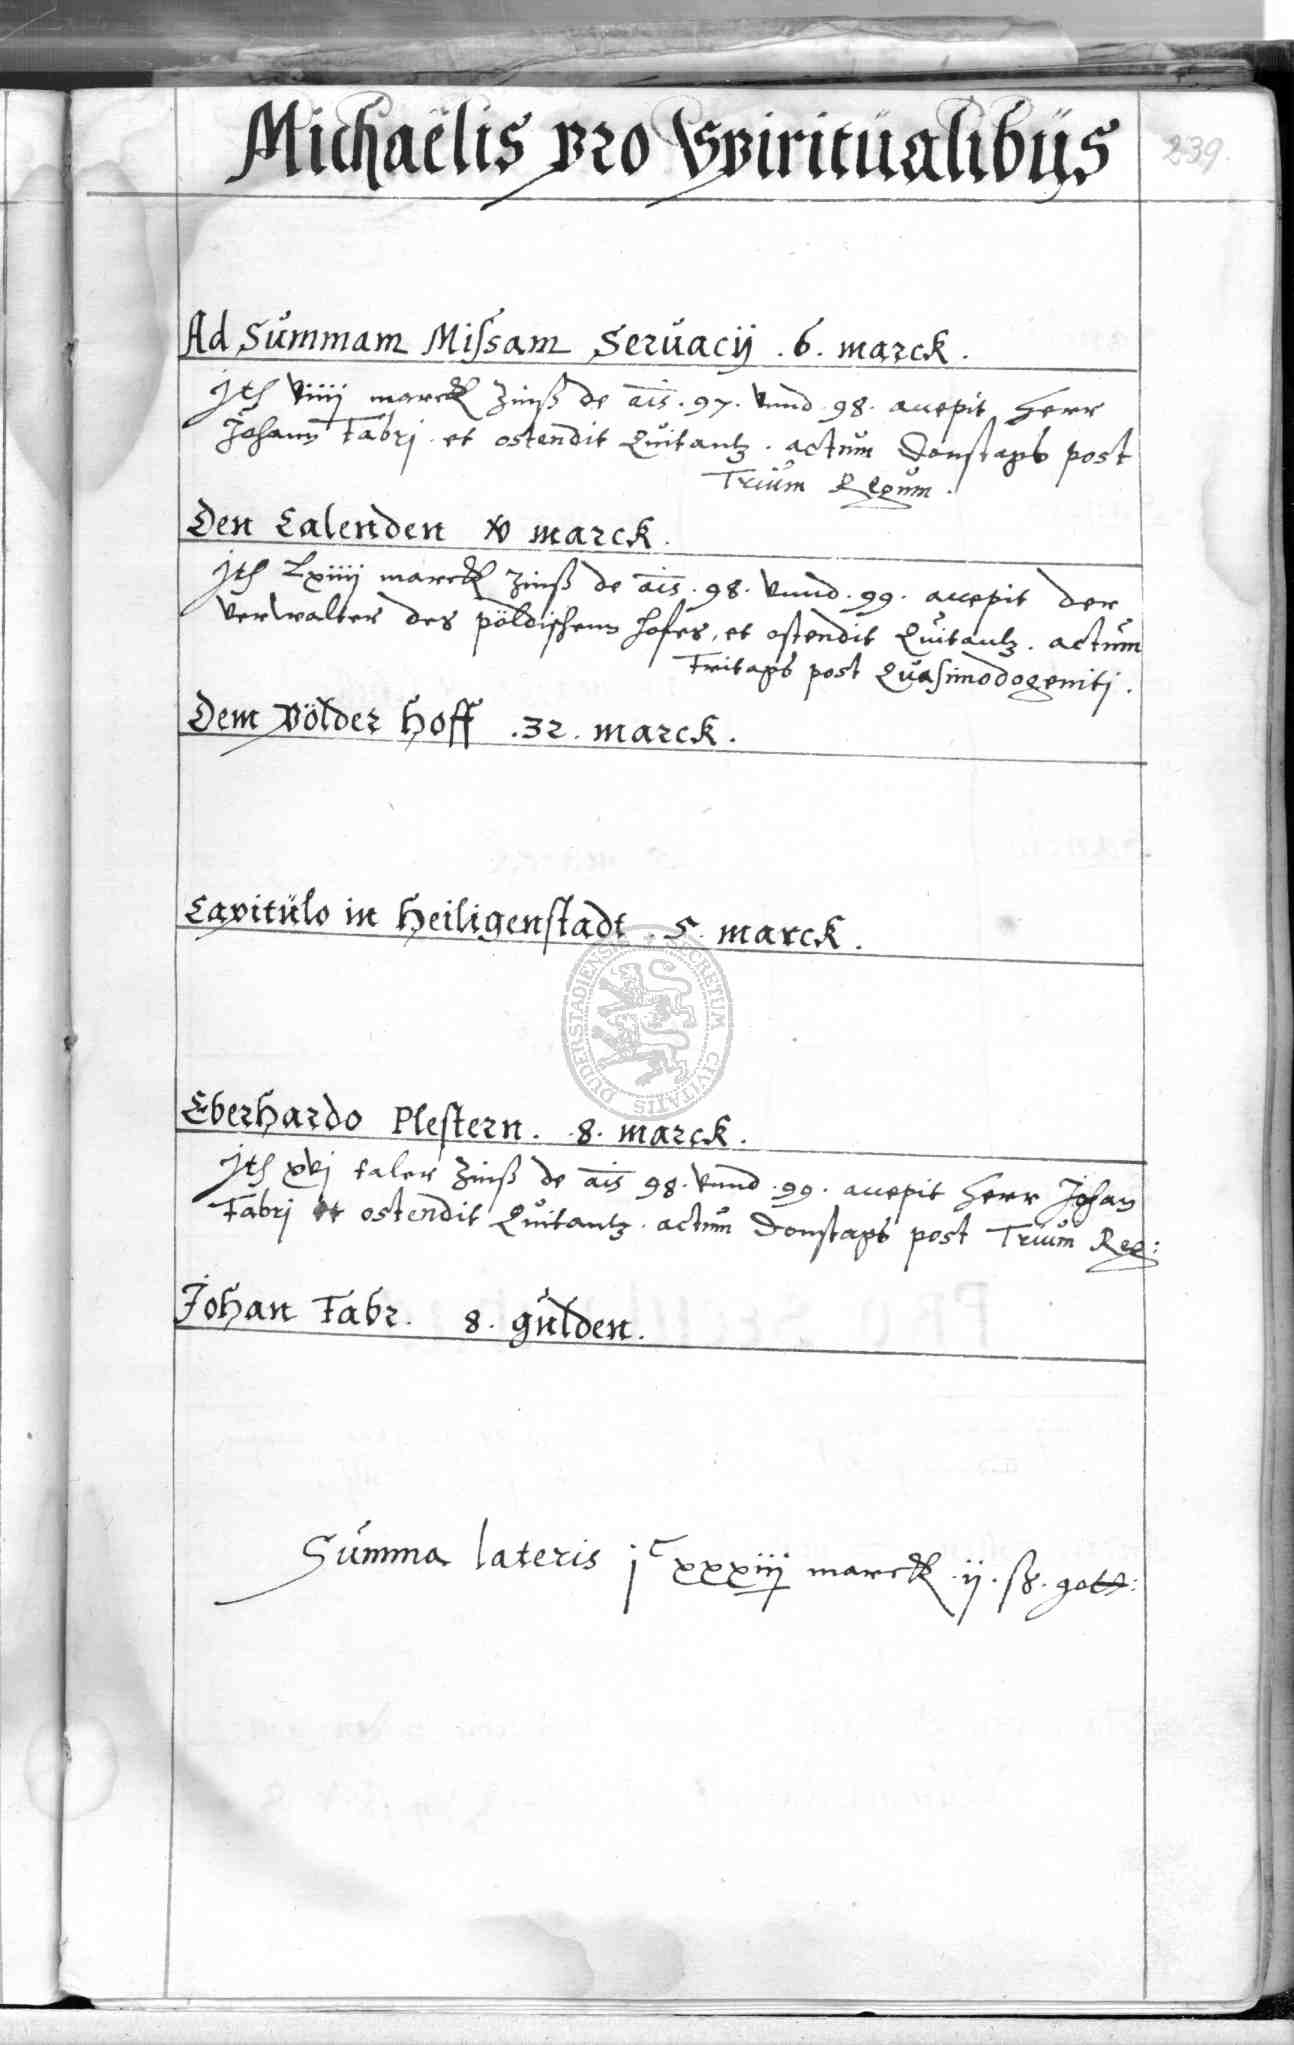 Michaëlis pro Spiritüalibüs
239.
Ad Sümmam Missam Servacij . 6. marck.
Jtħ viiij marck Zinß de ais . 97. vnnd . 98. accepit Herr
Johann Fabrj . et ostendit Quitantz . actum Donstags post
Trium Regum .
Den Calenden v marck .
Jtħ Lxiiij marck Zinß de ais . 98. vnnd . 99. accepit der
verwalter des pöldischenn hofes, et ostendit Quitantz . actum
Fritags post Quasimodogenitj .
Dem Pölder Hoff . 32. marck .
Capitülo in Heiligenstadt . 5. marck .
DUDERSTADIENSIS SECRETUM CIVITATIS
Eberhardo Plestern . 8. marck .
Jtħ xvj taler Zinß de ais 98. vnnd . 99. accepit Herr Johan
Fabrj et ostendit Quitantz . actum Donstags post Trium Reg:
Johan Fabr. 8. gülden .
Summa lateris jᶜ xxxiij marck .ij. ß. gott: